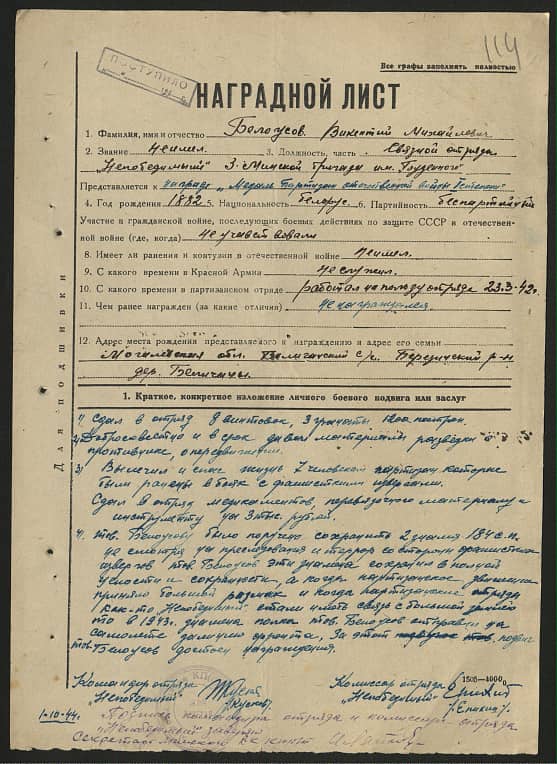 114
Все графы заполнять полностью
ПОСТУПИЛО
НАГРАДНОЙ ЛИСТ
1. Фамилия, имя и отчество Белоусов Викентий Михайлович
2. Звание неимел. 3. Должность, часть Связной отряда
"Непобедимый" 3-Минской бригады им. Буденого
Представляется к награде "Медаль Партизан отечественной войны II степени"
4. Год рождения 1882 5. Национальность белорус 6. Партийность беспартийный
Участие в гражданской войне, последующих боевых действиях по защите СССР и отечествен-
ной войне (где, когда) не участвовал
8. Имеет ли ранения и контузии в отечественной войне неимел.
9. С какого времени в Красной Армии неслужил.
10. С какого времени в партизанском отряде работал на пользу отряда 23.3-42г.
11. Чем ранее награжден (за какие отличия) ненаграждался
12. Адрес места рождения представляемого к награждению и адрес его семьи
Могилевская обл. с/с. Березинский р-н
дер.
Для подшивки
1. Краткое, конкретное изложение личного боевого подвига или заслуг
1) Сдал в отряд 8 винтовок, 3 гранаты патрон.
2) Добросовестно и в срок давал материалы разведки о
противнике, о передвижении.
3) Вылечил и спас жизнь 7 человекам партизан которые
были ранены в боях с фашистскими извергами.
Сдал в отряд медикаментов, перевязочного материалу и
инструменту на 3 тыс. рублей.
4. тов. Белоусову было поручено сохранить 2 знамя 184 с.п.
не смотря на преследования и террор со стороны фашистских
извергов тов. Белоусов эти знамёна сохранил в полной
целости и сохранности, а когда партизанское движение
приняло большой размах и когда партизанские отряды
как-то "Непобедимый" стали иметь связь с большой землёй
то в 1943г. знамёна полка тов. Белоусов отправил на
самолете за линию фронта, За этот подвиг
тов. Белоусов достоен награждения.
1505-4000
Командир отряда
"Непобедимый"
Комиссар отряда
"Непобедимый"
1-10-44г.
командира отряда и комиссара отряда
"Непобедимый" заверяю
Секретарь РК КП(б)Б